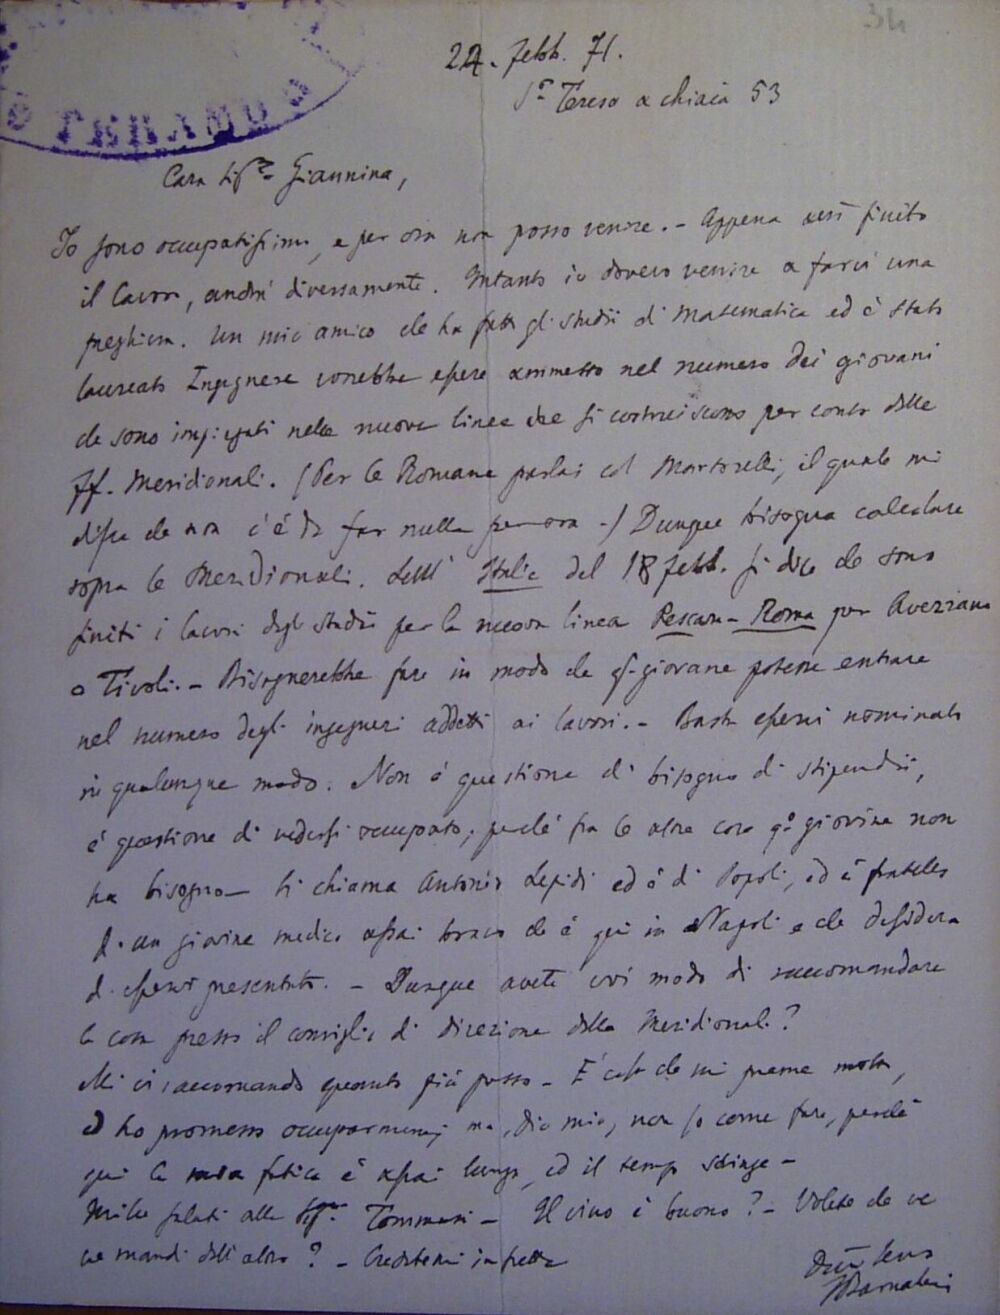 34
TERAMO
24. febb. 71.
Sa Teresa a chiaia 53
Cara Sigra Giannina,
Io sono occupatissimo, e per ora non posso venire. - Appena avrò finito
il lavoro, andrà diversamente. Intanto io dovevo venire a farvi una
preghiera. Un mio amico che ha fatti gli studii di Matematica ed è stato
laureato Ingegnere vorrebbe essere ammesso nel numero dei giovani
che sono impiegati nelle nuove linee che si costruiscono per conto delle
ff. Meridionali. (Per le Romane parlai col Martorelli, il quale mi
disse che non c'è da far nulla per ora -) Dunque bisogna calcolare
sopra le Meridionali. Nell' Italie del 18 febb. si dice che sono
finiti i lavori degli studii per la nuova linea Pescara - Roma per Avezzano
o Tivoli. - Bisognerebbe fare in modo che qo giovane potesse entrare
nel numero degli ingegneri addetti ai lavori. - Basta esservi nominato
in qualunque modo. Non è questione di bisogno di stipendii,
è questione di vedersi occupato, perché fra le altre cose qo giovine non
ha bisogno - Si chiama Antonio Lepidi ed è di Popoli, ed è fratello
di un giovine medico assai bravo che è qui in Napoli e che desidera
di esservi presentato. - Dunque avete voi modo di raccomandare
la cosa presso il consiglio di direzione delle Meridionali?
Mi vi raccomando quanto più posso - È cosa che mi preme molto,
ed ho promesso occuparmene; ma, dio mio, non so come fare, perché
qui la mia fatica è assai lunga, ed il tempo stringe -
Mille saluti alla Sigra Tommasi - Il vino è buono? - Volete che ve
ne mandi dell'altro? - Credetemi in fretta
Barnabei